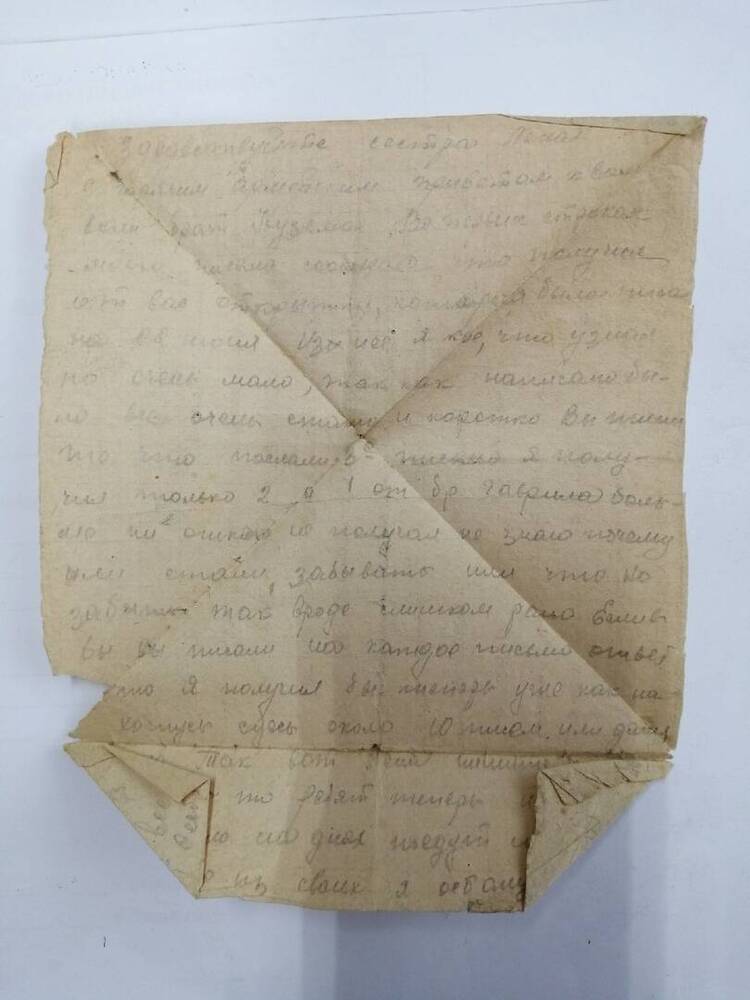 Здравствуйте сестра
с теплым приветом к вам
ваш брат Кузьма. В первых строках
моего письма сообщаю, что получил
от вас открытку, которая была
на 28 июля Из нее я кое, что узнал
но очень мало, так как написано бы-
ло очень и коротко Вы пишите
что что послали 3 письма я полу-
чил только 2 а 1 от бр Гаврила боль-
ше ни откого не получал не знаю почему
или стали забывать или что но
забыть так вроде слишком рано Если
бы вы писали на каждое письмо ответ
то я получил бы теперь уже как на-
хожусь здесь около 10 писем или даже
Так вот
то ребят теперь
на днях поедут
из своих я